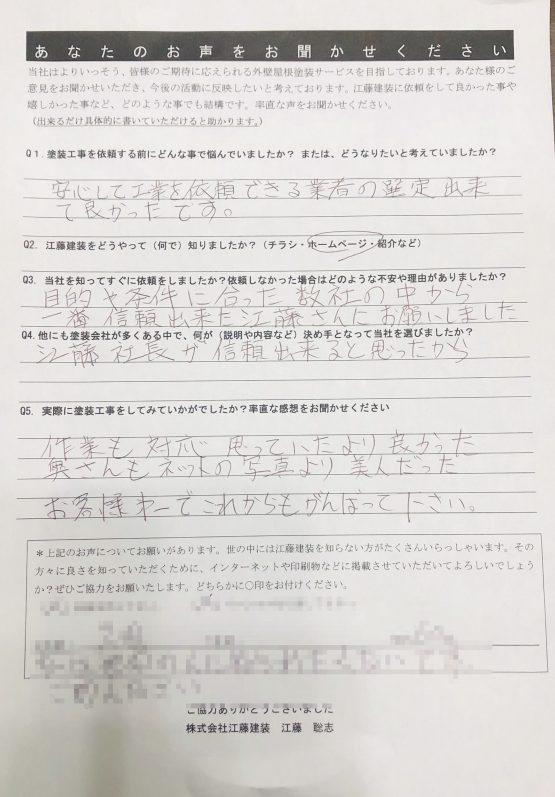 あなたのお声をお聞かせください
当社はよりいっそう、皆様のご期待に応えられる外壁屋根塗装サービスを目指しております。あなた様のご
意見をお聞かせいただき、今後の活動に反映したいと考えております。江藤建装に依頼をして良かった事や
嬉しかった事など、どのような事でも結構です。率直な声をお聞かせください。
（出来るだけ具体的に書いていただけると助かります。）
Q1. 塗装工事を依頼する前にどんな事で悩んでいましたか？ または、どうなりたいと考えていましたか？
安心して工業を依頼できる業者の選定出来
て良かったです。
Q2. 江藤建装をどうやって（何で）知りましたか？（チラシ・ホームページ・紹介など）
Q3. 当社を知ってすぐに依頼をしましたか？依頼しなかった場合はどのような不安や理由がありましたか？
目的や条件に合った数社の中から
一番信頼出来た江藤さんにお願いしました
Q4. 他にも塗装会社が多くある中で、何が（説明や内容など）決め手となって当社を選びましたか？
江藤社長が信頼出来ると思ったから
Q5. 実際に塗装工事をしてみていかがでしたか？率直な感想をお聞かせください
作業も対応思っていたより良かった
奥さんもネットの写真より美人だった
お客様第一でこれからもがんばって下さい。
＊上記のお声についてお願いがあります。世の中には江藤建装を知らない方がたくさんいらっしゃいます。その
方々に良さを知っていただくために、インターネットや印刷物などに掲載させていただいてよろしいでしょう
か？ぜひご協力をお願いします。どちらかに〇印をお付けください。
ご協力ありがとうございました
株式会社江藤建装 江藤 聡志